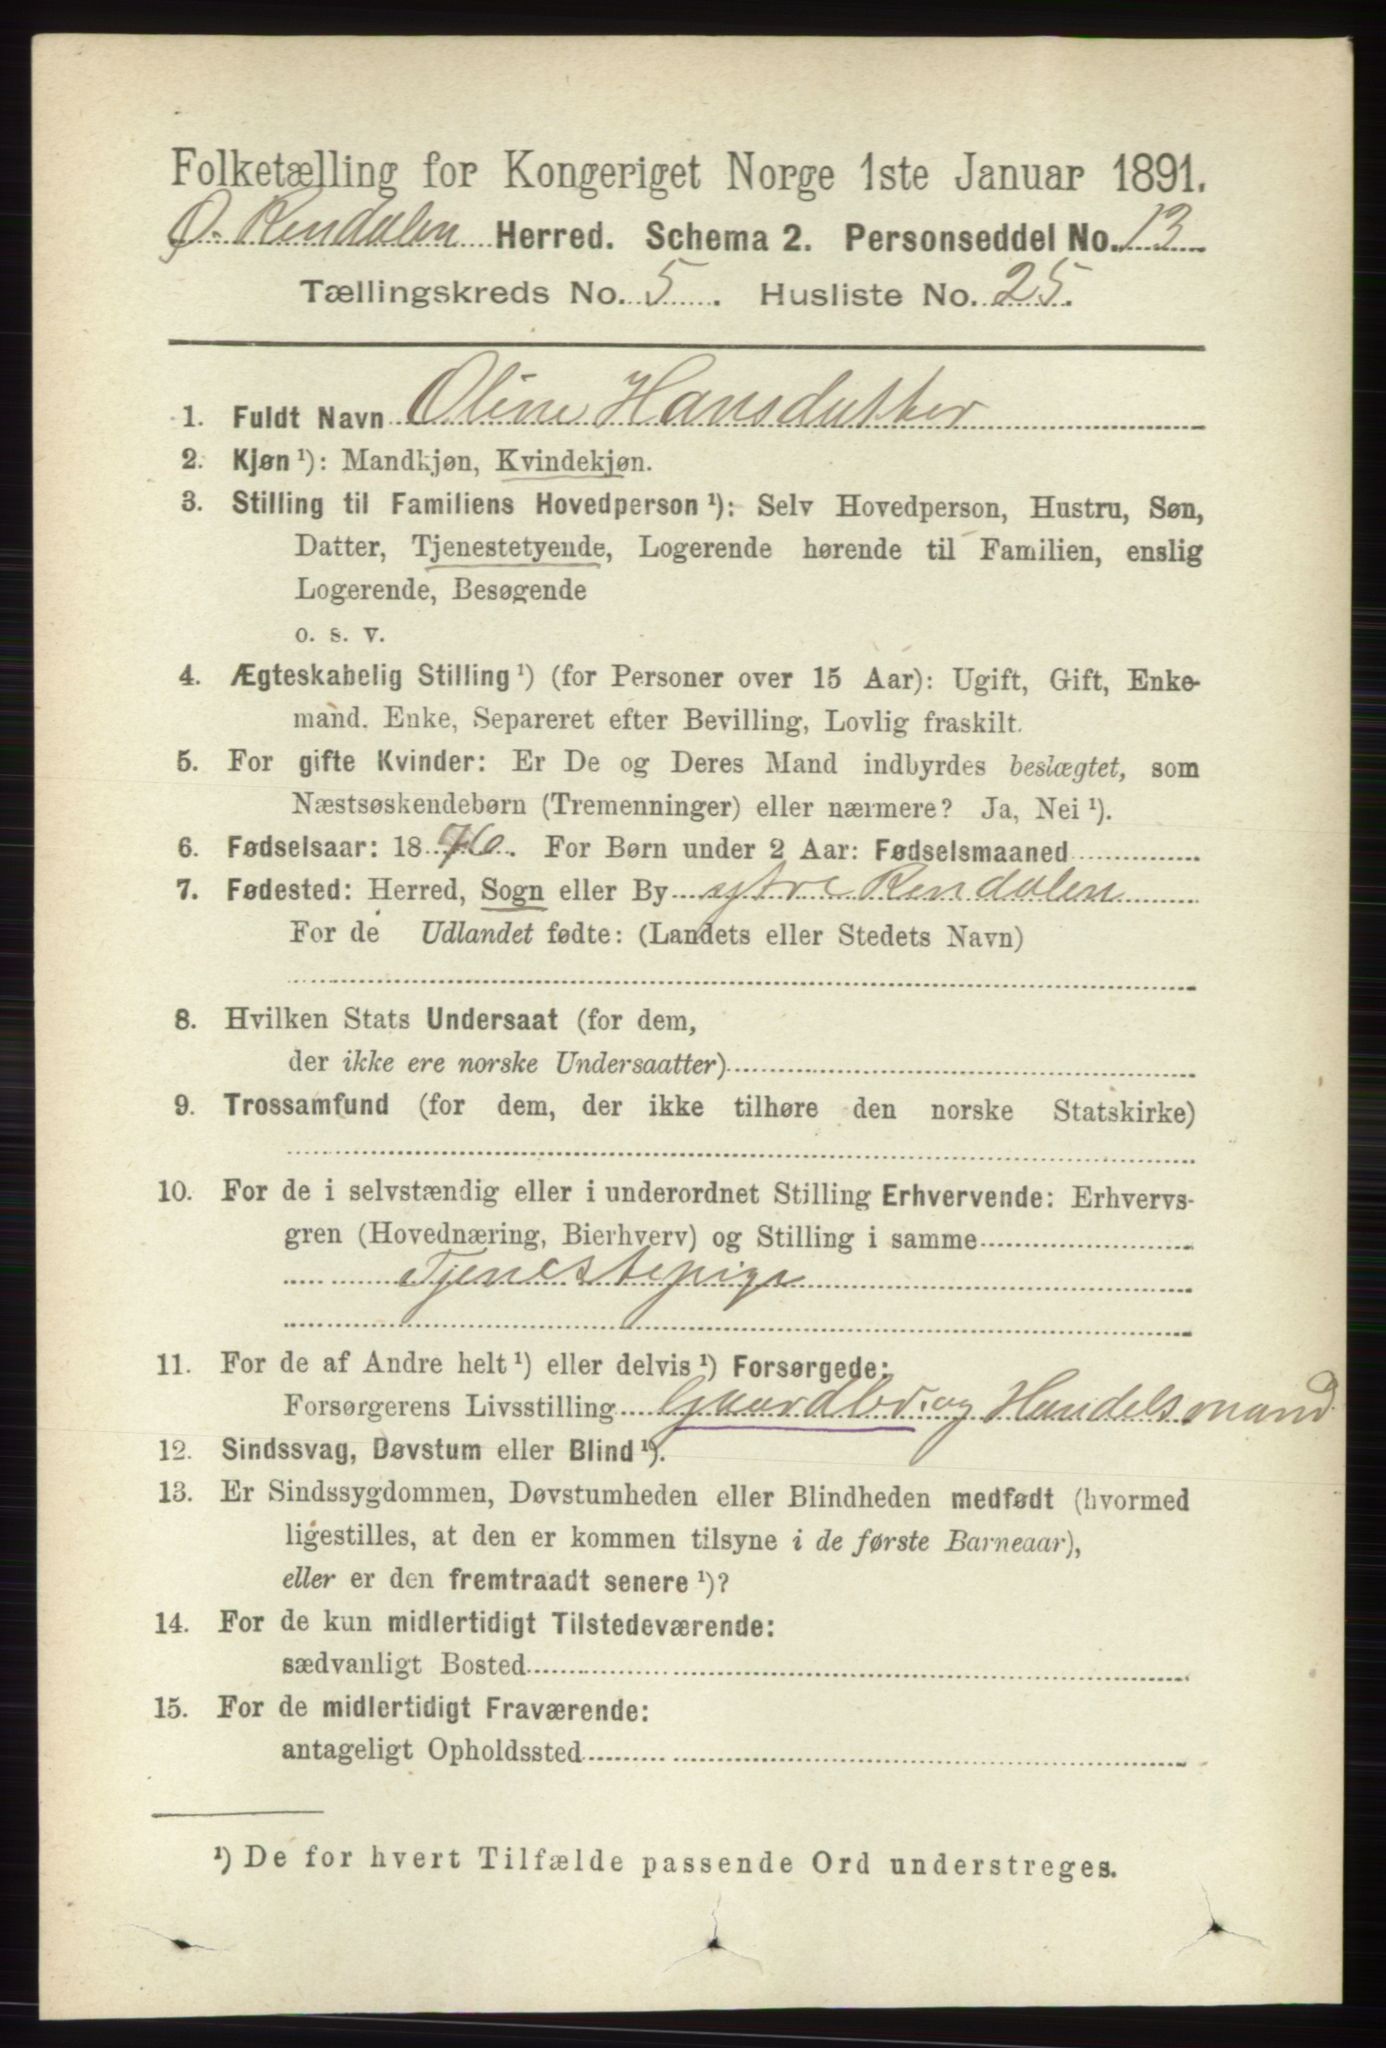 Folketælling for Kongeriget Norge 1ste Januar 1891.
Ø. Rendalen Herred. Schema 2. Personseddel No. 13
Tællingskreds No. 5. Husliste No. 25.
1. Fuldt Navn Oline Hansdatter
2. Kjøn ¹): Mandkjøn, Kvindekjøn.
3. Stilling til Familiens Hovedperson ¹): Selv Hovedperson, Hustru, Søn,
Datter, Tjenestetyende, Logerende hørende til Familien, enslig
Logerende, Besøgende
o. s. v.
4. Ægteskabelig Stilling ¹) (for Personer over 15 Aar): Ugift, Gift, Enke-
mand, Enke, Separeret efter Bevilling, Lovlig fraskilt.
5. For gifte Kvinder: Er De og Deres Mand indbyrdes beslægtet, som
Næstsøskendebørn (Tremenninger) eller nærmere? Ja, Nei ¹).
6. Fødselsaar: 1876. For Børn under 2 Aar: Fødselsmaaned
7. Fødested: Herred, Sogn eller By ytre Rendalen
For de Udlandet fødte: (Landets eller Stedets Navn)
8. Hvilken Stats Undersaat (for dem,
der ikke ere norske Undersaatter)
9. Trossamfund (for dem, der ikke tilhøre den norske Statskirke)
10. For de i selvstændig eller i underordnet Stilling Erhvervende: Erhvervs-
gren (Hovednæring, Bierhverv) og Stilling i samme
Tjenestepige
11. For de af Andre helt ¹) eller delvis ¹) Forsørgede:
Forsørgerens Livsstilling Gaardbr. og Handelsmand
12. Sindssvag, Døvstum eller Blind ¹).
13. Er Sindssygdommen, Døvstumheden eller Blindheden medfødt (hvormed
ligestilles, at den er kommen tilsyne i de første Barneaar),
eller er den fremtraadt senere ¹)?
14. For de kun midlertidigt Tilstedeværende:
sædvanligt Bosted
15. For de midlertidigt Fraværende:
antageligt Opholdssted
¹) De for hvert Tilfælde passende Ord understreges.